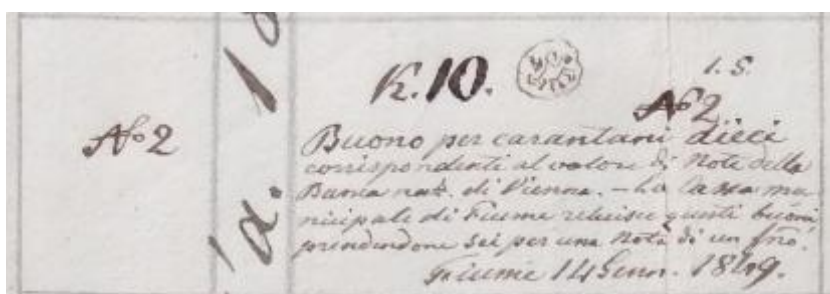 No 2
à. 10
K. 10.
No 2
Buono per carantani dieci
corrispondenti al valore di Note della
Banca naz. di Vienna. – La Cassa mu
nicipale di Fiume questi buoni
prendendone sei per una Nota di un fno.
Fiume 14 Genn. 1849.